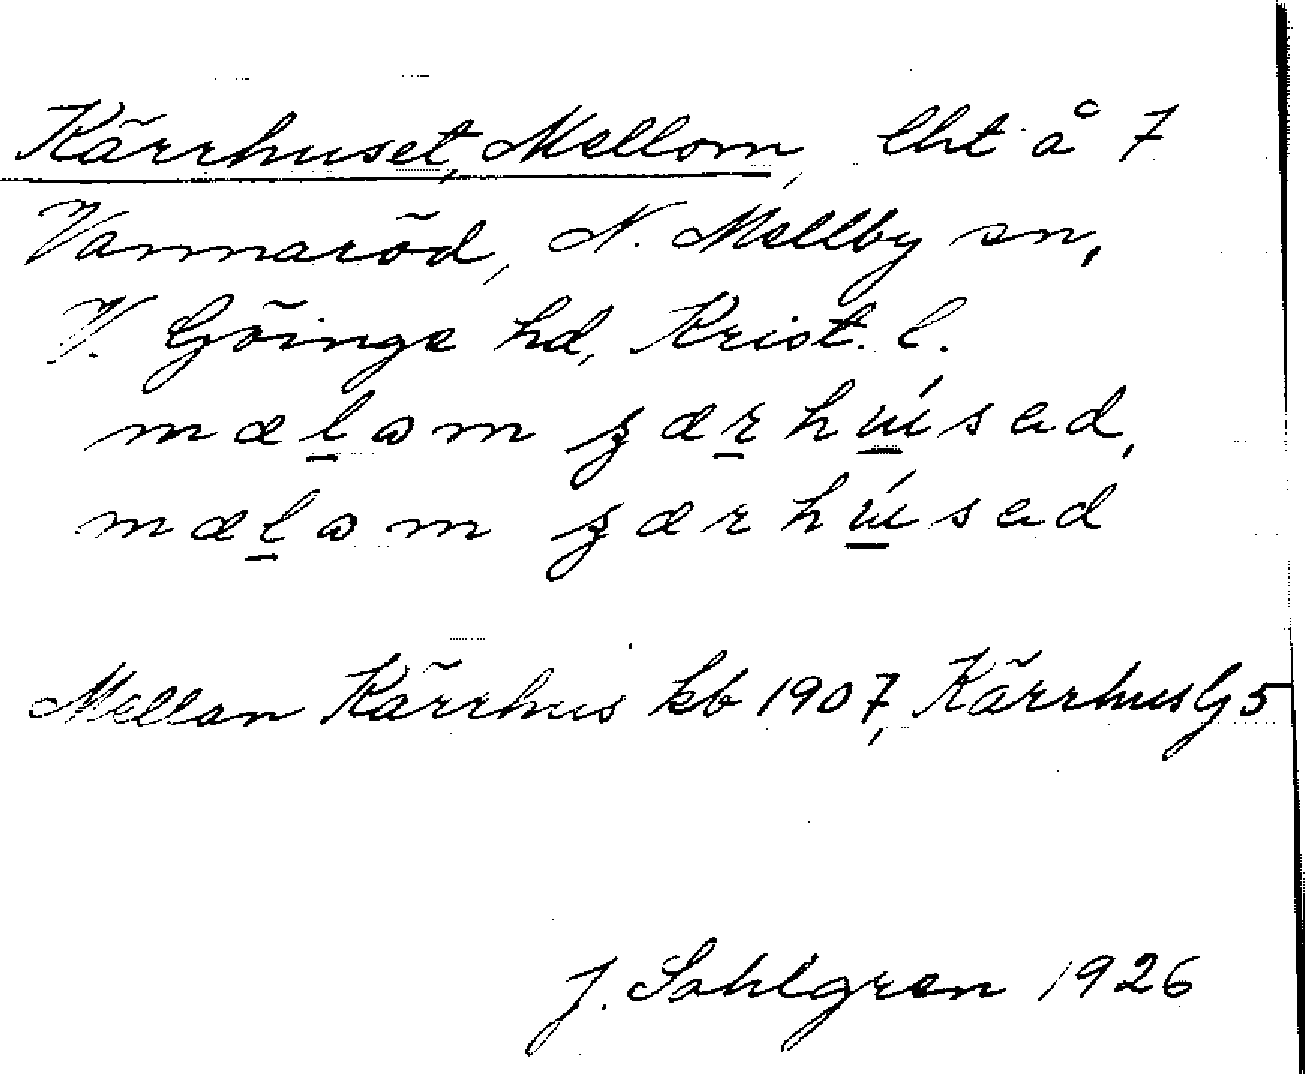 Kärrhuset, Mellom, lht å 7
Vannaröd, N. Mellby sn,
V. Göinge hd, Krist. l.
mælɷm ʒærhúsəd,
mælɷm ʒærhúsəd
Mellan Kärrhus kb 1907, Kärrhus G 5
J. Sahlgren 1926